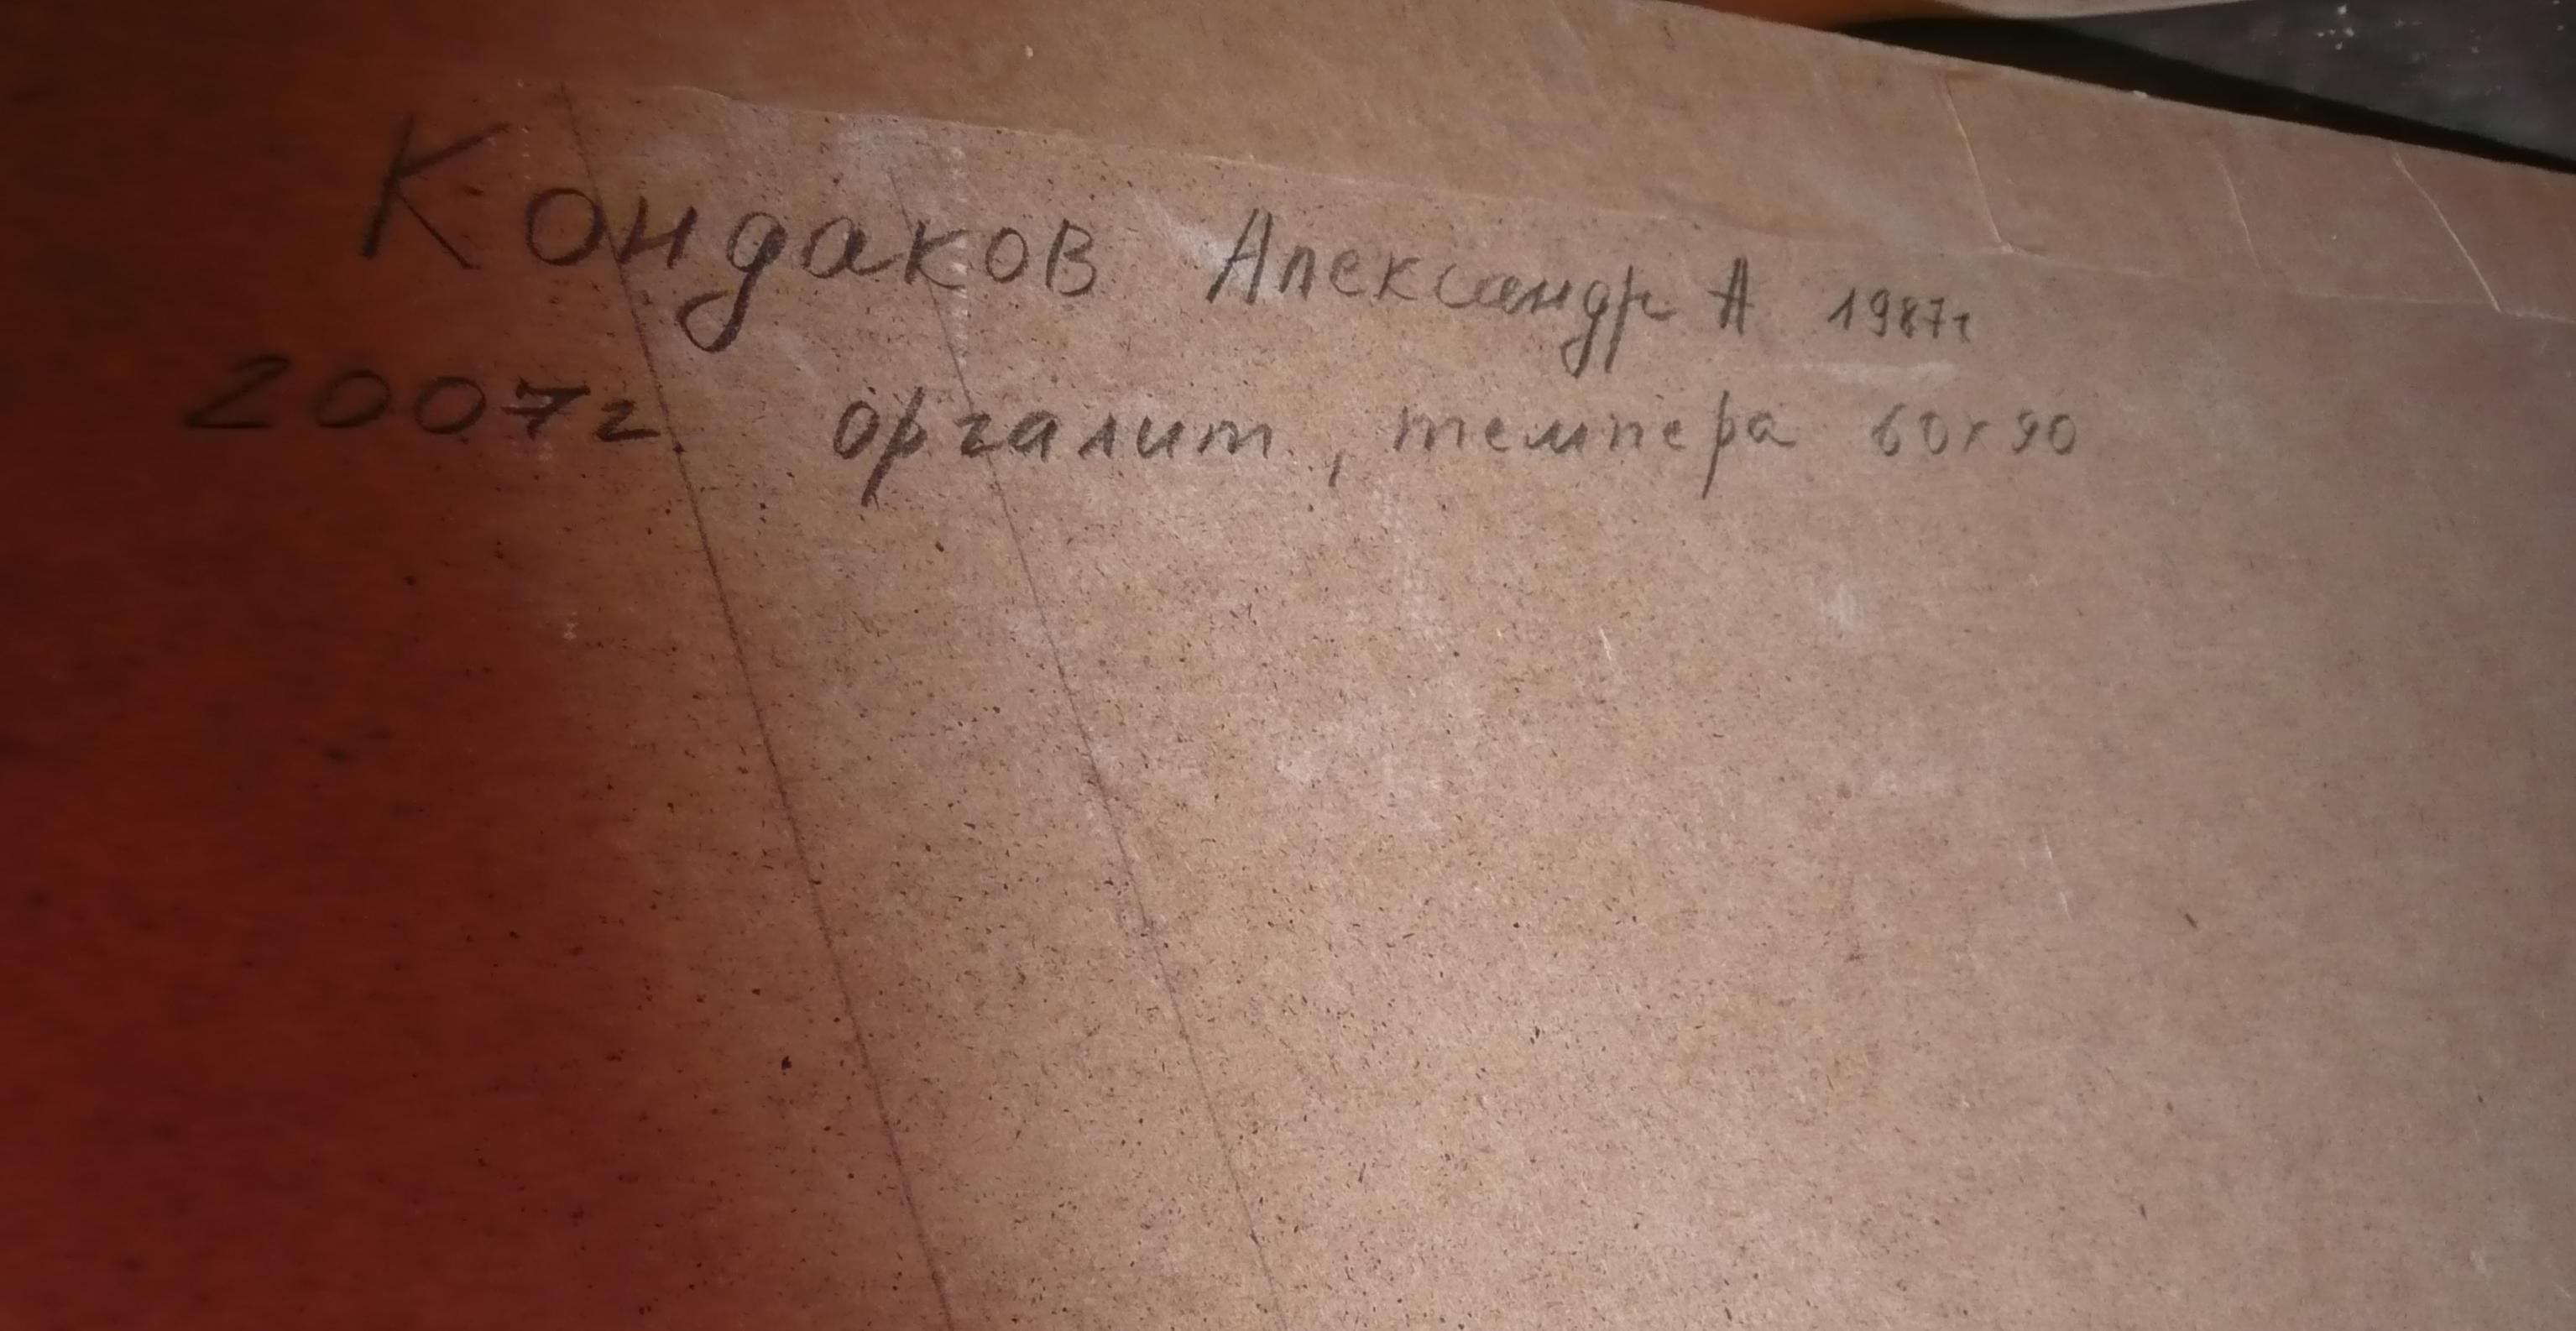 Кондаков Александр А 1987г
2007г. оргалит, темпера 60х90